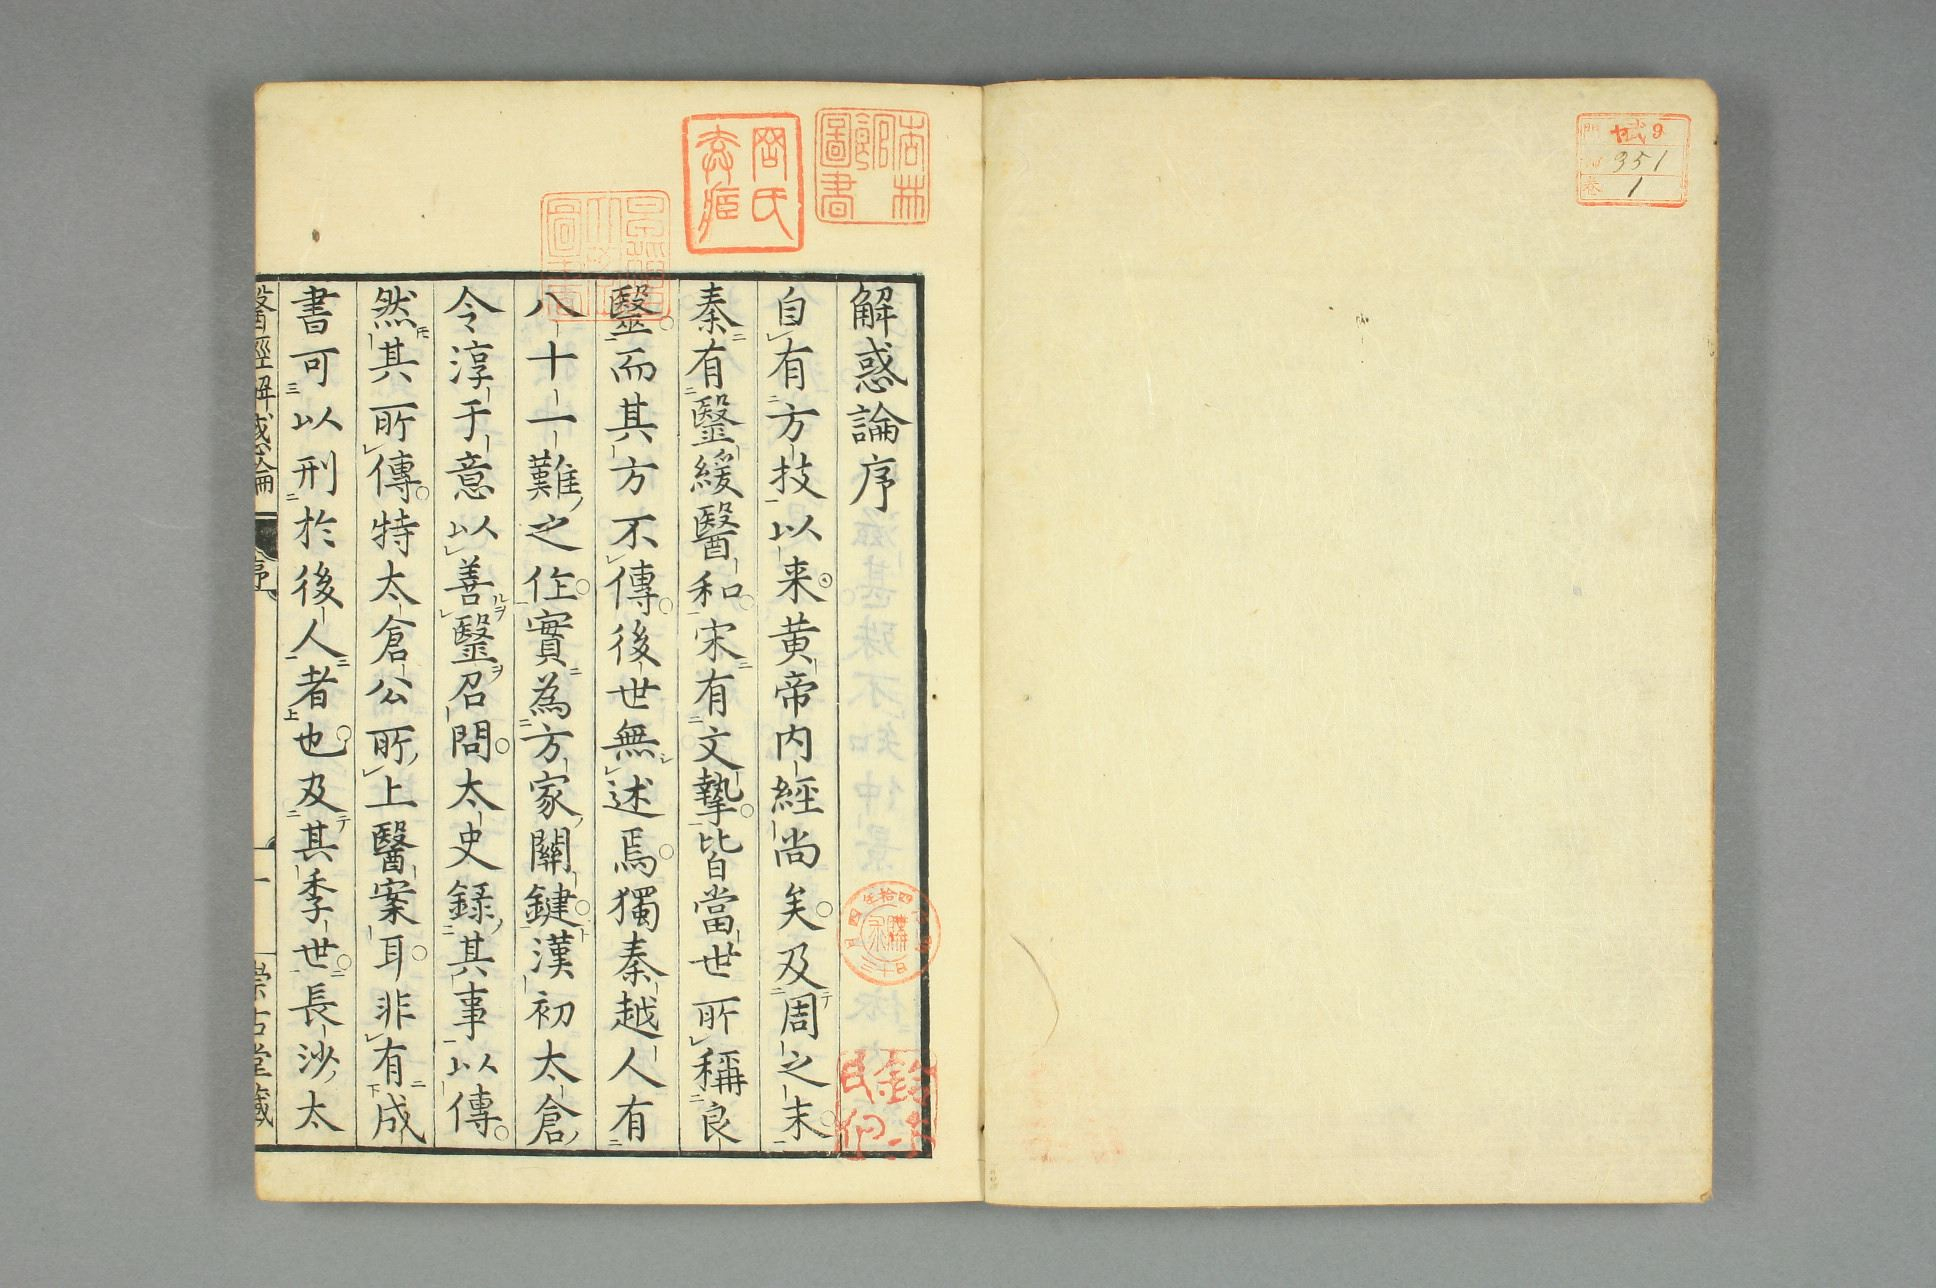 351
1
解惑論序
自有方技以来黄帝内經尚矣及周之末
秦有毉緩醫和宋有文摯皆當世所稱良
毉而其方不傳後世無述焉獨秦越人有
八十一難之作實為方家關鍵漢初太倉
令淳于意以善毉召問太史録其事以傳
然其所傳特太倉公所上醫案耳非有成
書可以刑於後人者也及其季世長沙太
醫經解惑論
序
一
崇古堂藏